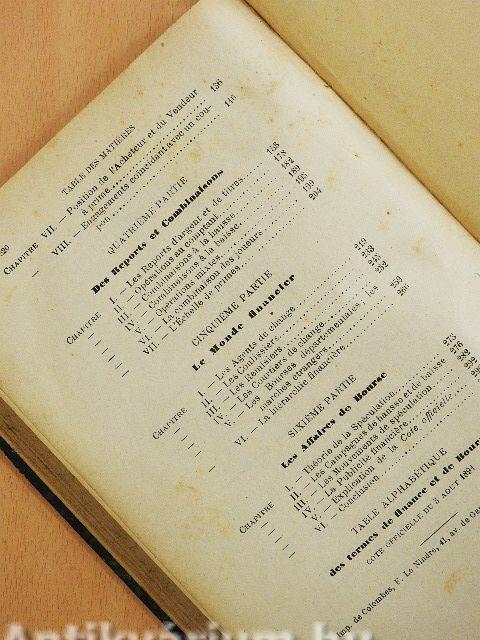 320
TABLE DES MATIÈRES
CHAPITRE VII. — Position de l'Acheteur et du Vendeur
à prime. 136
— VIII. — Engagements coïncidant avec un cou-
pon 146
QUATRIÈME PARTIE
Des Reports et Combinaisons
CHAPITRE I. — Les Reports d'argent et de titres. 155
— II. — Opérations au comptant. 178
— III. — Combinaisons à la hausse 182
— IV. — Combinaisons à la baisse. 189
— V. — Opérations mixtes. 193
— VI. — La combinaison des joueurs. 199
— VII. — L'Échelle de primes. 204
CINQUIÈME PARTIE
Le Monde financier
CHAPITRE I. — Les Agents de change. 219
— II. — Les Coulissiers.
— III. — Les Remisiers
— IV. — Les Courtiers de change 252
— V. — Les Bourses départementales; les
marchés étrangers. 259
— VI. — La hiérarchie financière. 266
SIXIÈME PARTIE
Les Affaires de Bourse
CHAPITRE I. — Théorie de la Spéculation. 273
— II. — Les Campagnes de hausse et de baisse
— III. — Les Mouvements de spéculation
— IV. — La Publicité financière.
— V. — Explication de la Cote officielle.
— VI. — Conclusion
TABLE ALPHABÉTIQUE
des termes de finance et de Bour
COTE OFFICIELLE DU 3 AOUT 1891
Imp. de Colombes, E. Le Nindre, 41, av. de
Antikvárium.hu